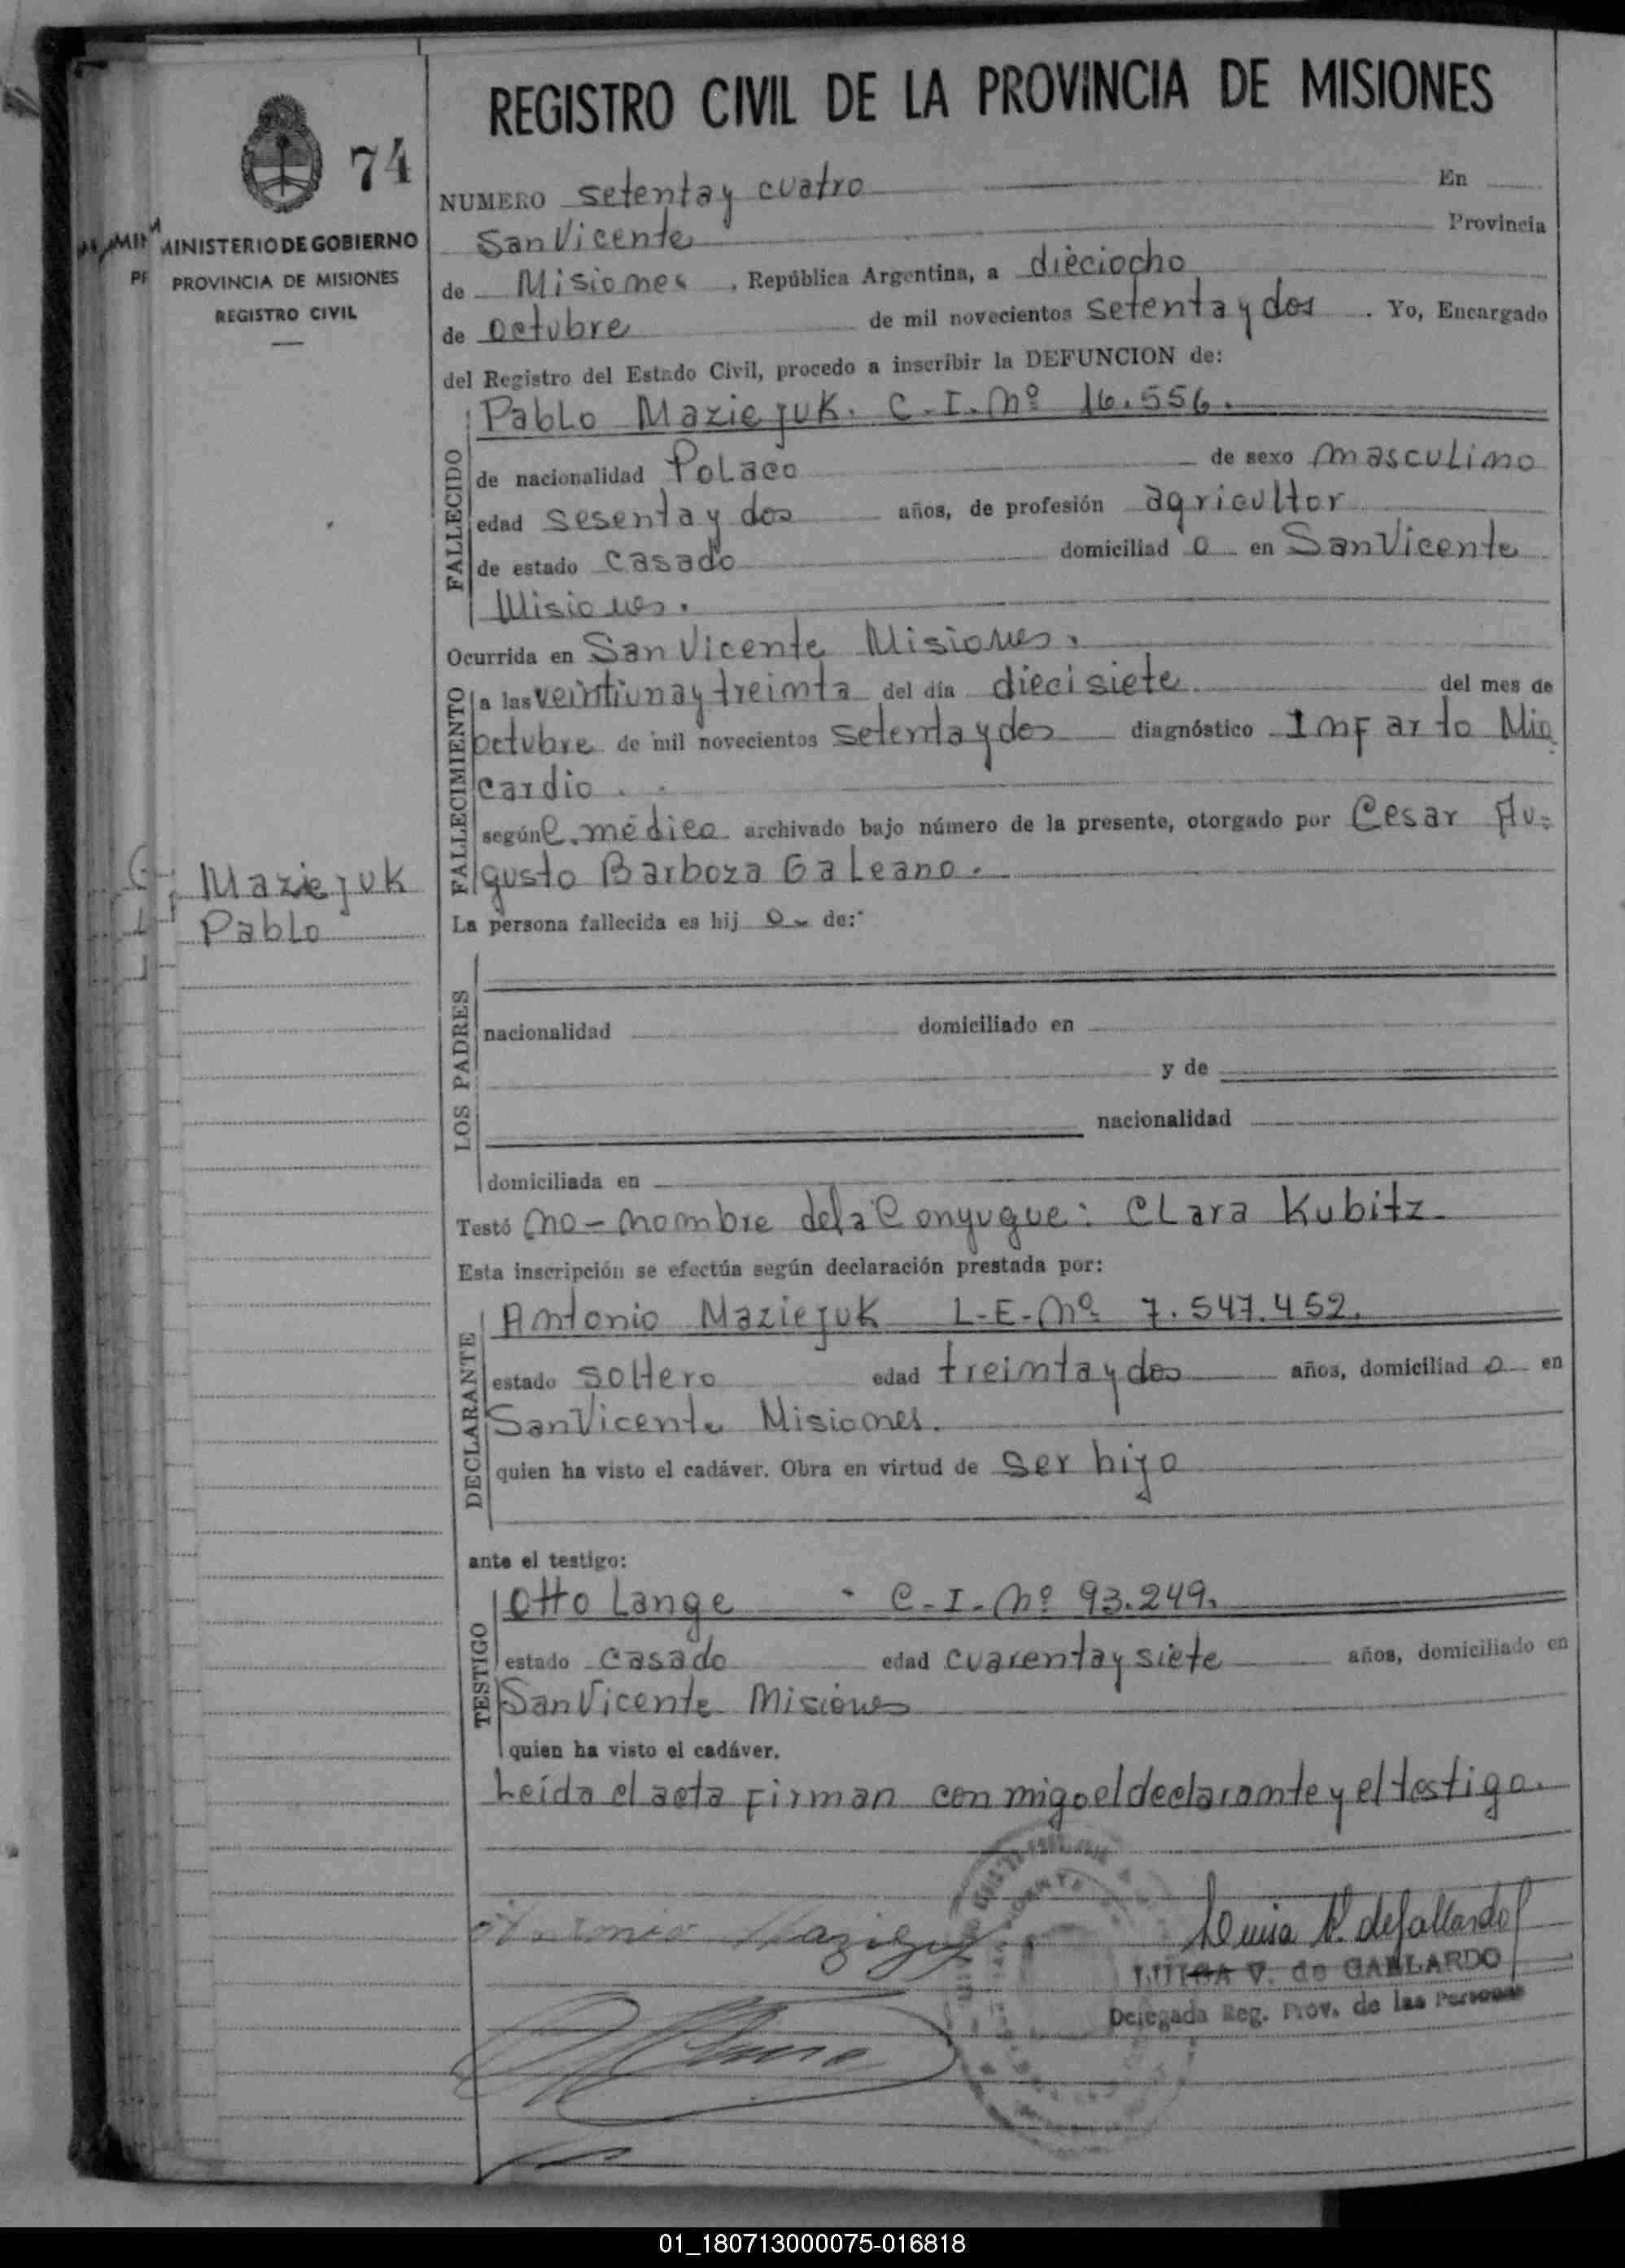 REGISTRO CIVIL DE LA PROVINCIA DE MISIONES
74
MINISTERIO DE GOBIERNO
PROVINCIA DE MISIONES
REGISTRO CIVIL
NUMERO setenta y cuatro En
San Vicente Provincia
de Misiones , República Argentina, a dieciocho
de octubre de mil novecientos setenta y dos . Yo, Encargado
del Registro del Estado Civil, procedo a inscribir la DEFUNCION de:
FALLECIDO
Pablo Maziejuk. C.I. Nº 16.556.
de nacionalidad Polaco de sexo masculino
edad sesenta y dos años, de profesión agricultor
de estado casado domiciliad o en San Vicente
Misiones.
Ocurrida en San Vicente Misiones.
FALLECIMIENTO
a las veintiuna y treinta del día diecisiete del mes de
octubre de mil novecientos setenta y dos diagnóstico Infarto Mio
cardio.
según C. médico archivado bajo número de la presente, otorgado por Cesar Au-
gusto Barboza Galeano.
Maziejuk
Pablo
La persona fallecida es hij o de:
LOS PADRES
nacionalidad domiciliado en
y de
nacionalidad
domiciliada en
Testó no - nombre de la Conyugue: Clara Kubitz
Esta inscripción se efectúa según declaración prestada por:
DECLARANTE
Antonio Maziejuk L-E-Nº 7.547.452.
estado soltero edad treinta y dos años, domiciliad o en
San Vicente Misiones.
quien ha visto el cadáver. Obra en virtud de ser hijo
ante el testigo:
TESTIGO
Otto Lange C-I-Nº 93.249.
estado casado edad cuarenta y siete años, domiciliado en
San Vicente Misiones
quien ha visto el cadáver.
Leída el acta firman conmigo el declarante y el testigo.
Antonio Maziejuk
Luisa V. de Gallardo
LUISA V. de GALLARDO
Delegada Reg. Prov. de las Personas
01_180713000075-016818